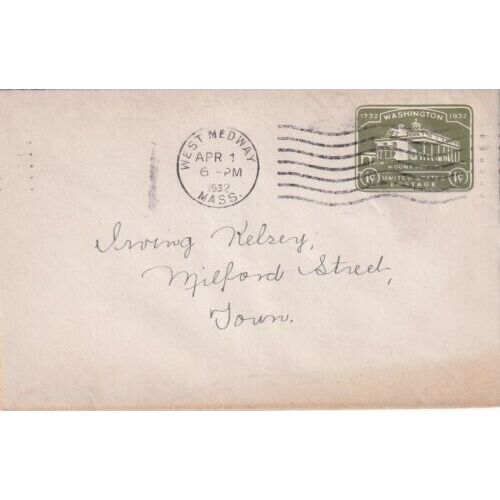 WEST MEDWAY
APR 1
6 - PM
1932
MASS.
1732 WASHINGTON 1932
MOUNT
UNITED STATES
1¢ POSTAGE 1¢
Irving Kelsey,
Milford Street,
Town.